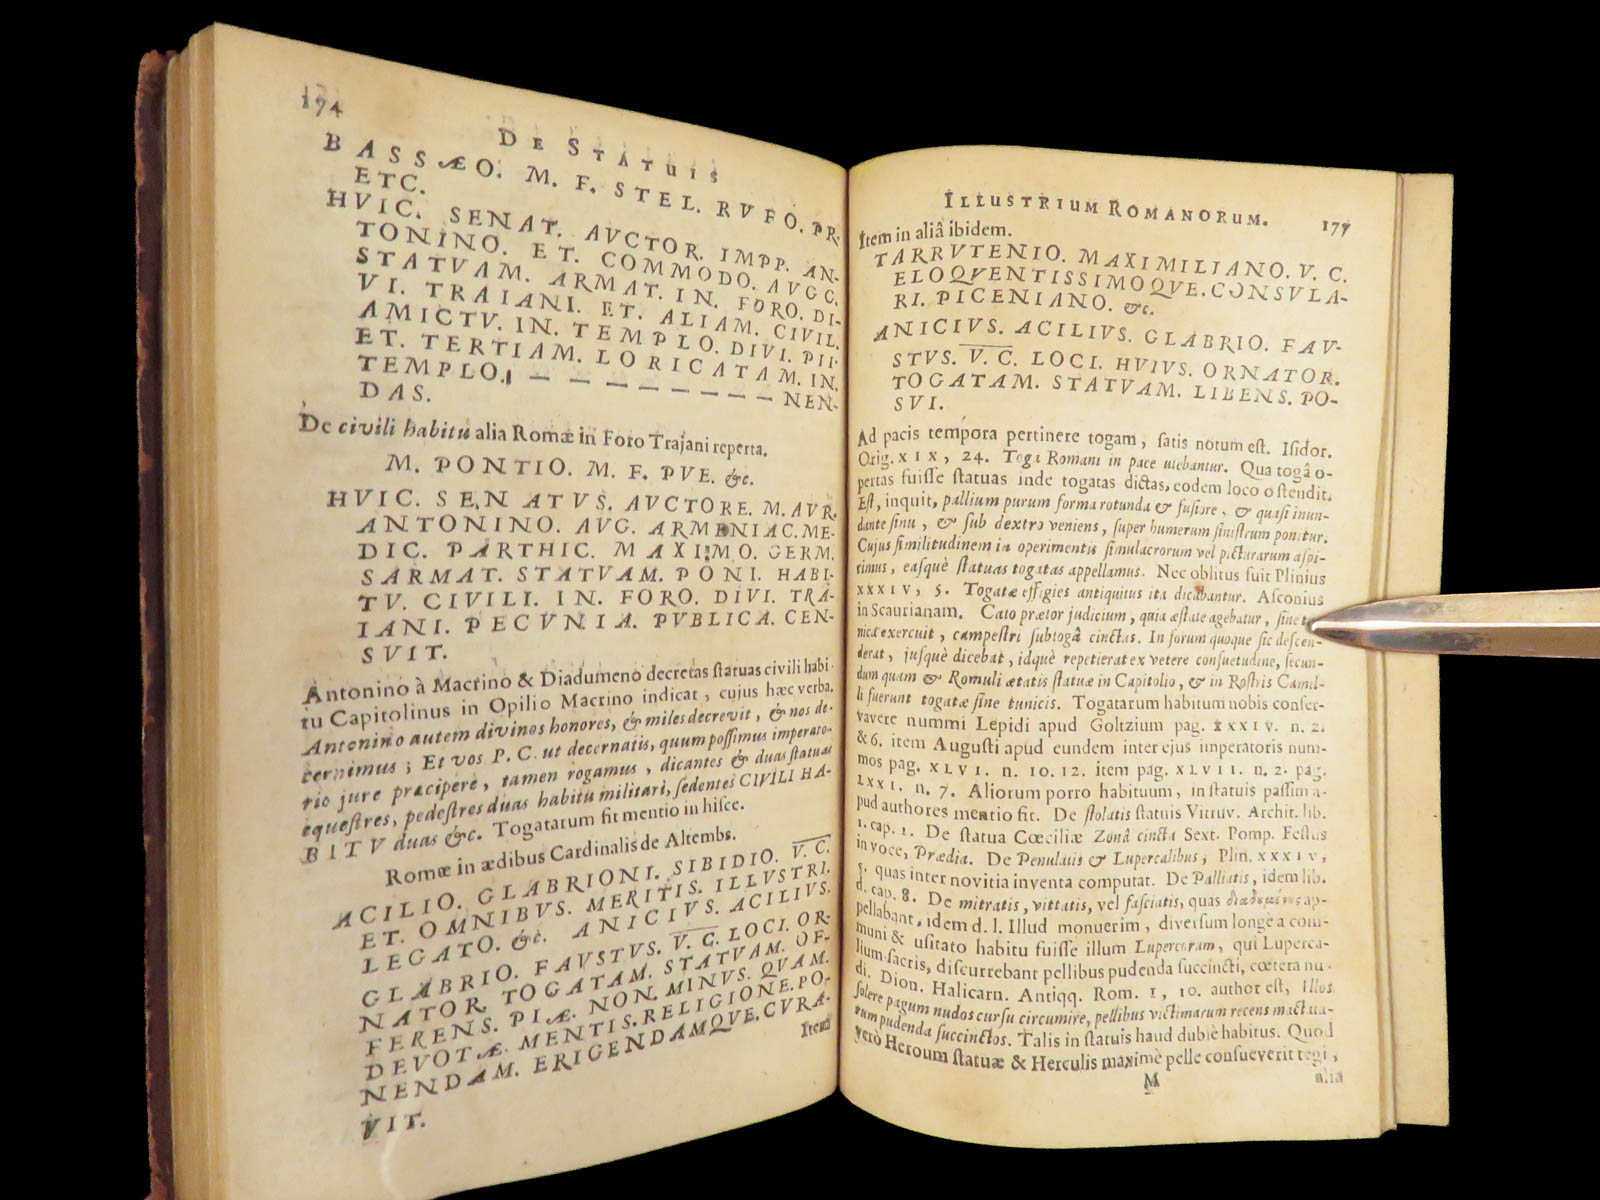 174
DE STATUIS
BASSÆO. M. F. STEL. RVFO. PR.
ETC.
HVIC. SENAT. AVCTOR. IMPP. AN-
TONINO. ET. COMMODO. AVGG.
STATVAM. ARMAT. IN. FORO. DI-
VI. TRAIANI. ET. ALIAM. CIVIL.
AMICTV. IN. TEMPLO. DIVI. PII.
ET. TERTIAM. LORICATAM. IN.
TEMPLO. — — — — — — — NEN-
DAS.
De civili habitu alia Romæ in Foro Trajani reperta.
M. PONTIO. M. F. PVE. &c.
HVIC. SENATVS. AVCTORE. M. AVR.
ANTONINO. AVG. ARMENIAC. ME-
DIC. PARTHIC. MAXIMO. GERM.
SARMAT. STATVAM. PONI. HABI-
TV. CIVILI. IN. FORO. DIVI. TRA-
IANI. PECVNIA. PVBLICA. CEN-
SVIT.
Antonino à Macrino & Diadumeno decretas statuas civili habi-
tu Capitolinus in Opilio Macrino indicat, cujus hæc verba.
Antonino autem divinos honores, & miles decrevit, & nos de-
cernimus; Et vos P. C. ut decernatis, quum possimus imperato-
rio jure præcipere, tamen rogamus, dicantes & duas statuas
equestres, pedestres duas habitu militari, sedentes CIVILI HA-
BITV duas &c. Togatarum fit mentio in hisce.
Romæ in ædibus Cardinalis de Altembs.
ACILIO. GLABRIONI. SIBIDIO. V. C.
ET. OMNIBVS. MERITIS. ILLVSTRI.
LEGATO. &c. ANICIVS. ACILIVS.
GLABRIO. FAVSTVS. V. C. LOCI. OR-
NATOR. TOGATAM. STATVAM. OF-
FERENS. PIÆ. NON. MINVS. QVAM.
DEVOTÆ. MENTIS. RELIGIONE. PO-
NENDAM. ERIGENDAMQVE. CVRA-
VIT.
Item
ILLUSTRIUM ROMANORUM. 177
Item in aliâ ibidem.
TARRVTENIO. MAXIMILIANO. V. C.
ELOQVENTISSIMOQVE. CONSVLA-
RI. PICENIANO. &c.
ANICIVS. ACILIVS. GLABRIO. FAV-
STVS. V. C. LOCI. HVIVS. ORNATOR.
TOGATAM. STATVAM. LIBENS. PO-
SVI.
Ad pacis tempora pertinere togam, satis notum est. Isidor.
Orig. XIX, 24. Toga Romani in pace utebantur. Qua togâ o-
pertas fuisse statuas inde togatas dictas, eodem loco ostendit.
Est, inquit, pallium purum forma rotunda & fusiore, & quasi inun-
dante sinu, & sub dextro veniens, super humerum sinistrum ponitur.
Cujus similitudinem in operimentis simulacrorum vel picturarum aspi-
cimus, easquè statuas togatas appellamus. Nec oblitus fuit Plinius
XXXIV, 5. Togatæ effigies antiquitus ita dicabantur. Asconius
in Scaurianam. Cato prætor judicium, quia æstate agebatur, sine
nica exercuit, campestri subtogâ cinctus. In forum quoque sic descen-
derat, jusquè dicebat, idquè repetierat ex vetere consuetudine, secun-
dum quam & Romuli ætatis statuæ in Capitolio, & in Rostris Camil-
li fuerunt togatæ sine tunicis. Togatarum habitum nobis conser-
vavere nummi Lepidi apud Goltzium pag. XXXIV. n. 2.
& 6. item Augusti apud eundem inter ejus imperatoris num-
mos pag. XLVI. n. 10. 12. item pag. XLVII. n. 2. pag.
LXXI. n. 7. Aliorum porro habituum, in statuis passim a-
pud authores mentio fit. De stolatis statuis Vitruv. Archit. lib.
1. cap. 1. De statua Cœciliæ Zonâ cincta Sext. Pomp. Festus
in voce, Prædia. De Penulatis & Lupercalibus, Plin. XXXIV,
5. quas inter novitia inventa computat. De Palliatis, idem lib.
d. cap. 8. De mitratis, vittatis, vel fasciatis, quas ap-
pellabant, idem d. l. Illud monuerim, diversum longè a com-
muni & usitato habitu fuisse illum Lupercorum, qui Luperca-
lium sacris, discurrebant pellibus pudenda succincti, cœtera nu-
di. Dion. Halicarn. Antiqq. Rom. 1, 10. author est, Illos
solere pagum nudos cursu circumire, pellibus victimarum recens mactata-
rum pudenda succinctos. Talis in statuis haud dubiè habitus. Quod
verò Heroum statuæ & Herculis maximè pelle consueverit tegi,
M
alia